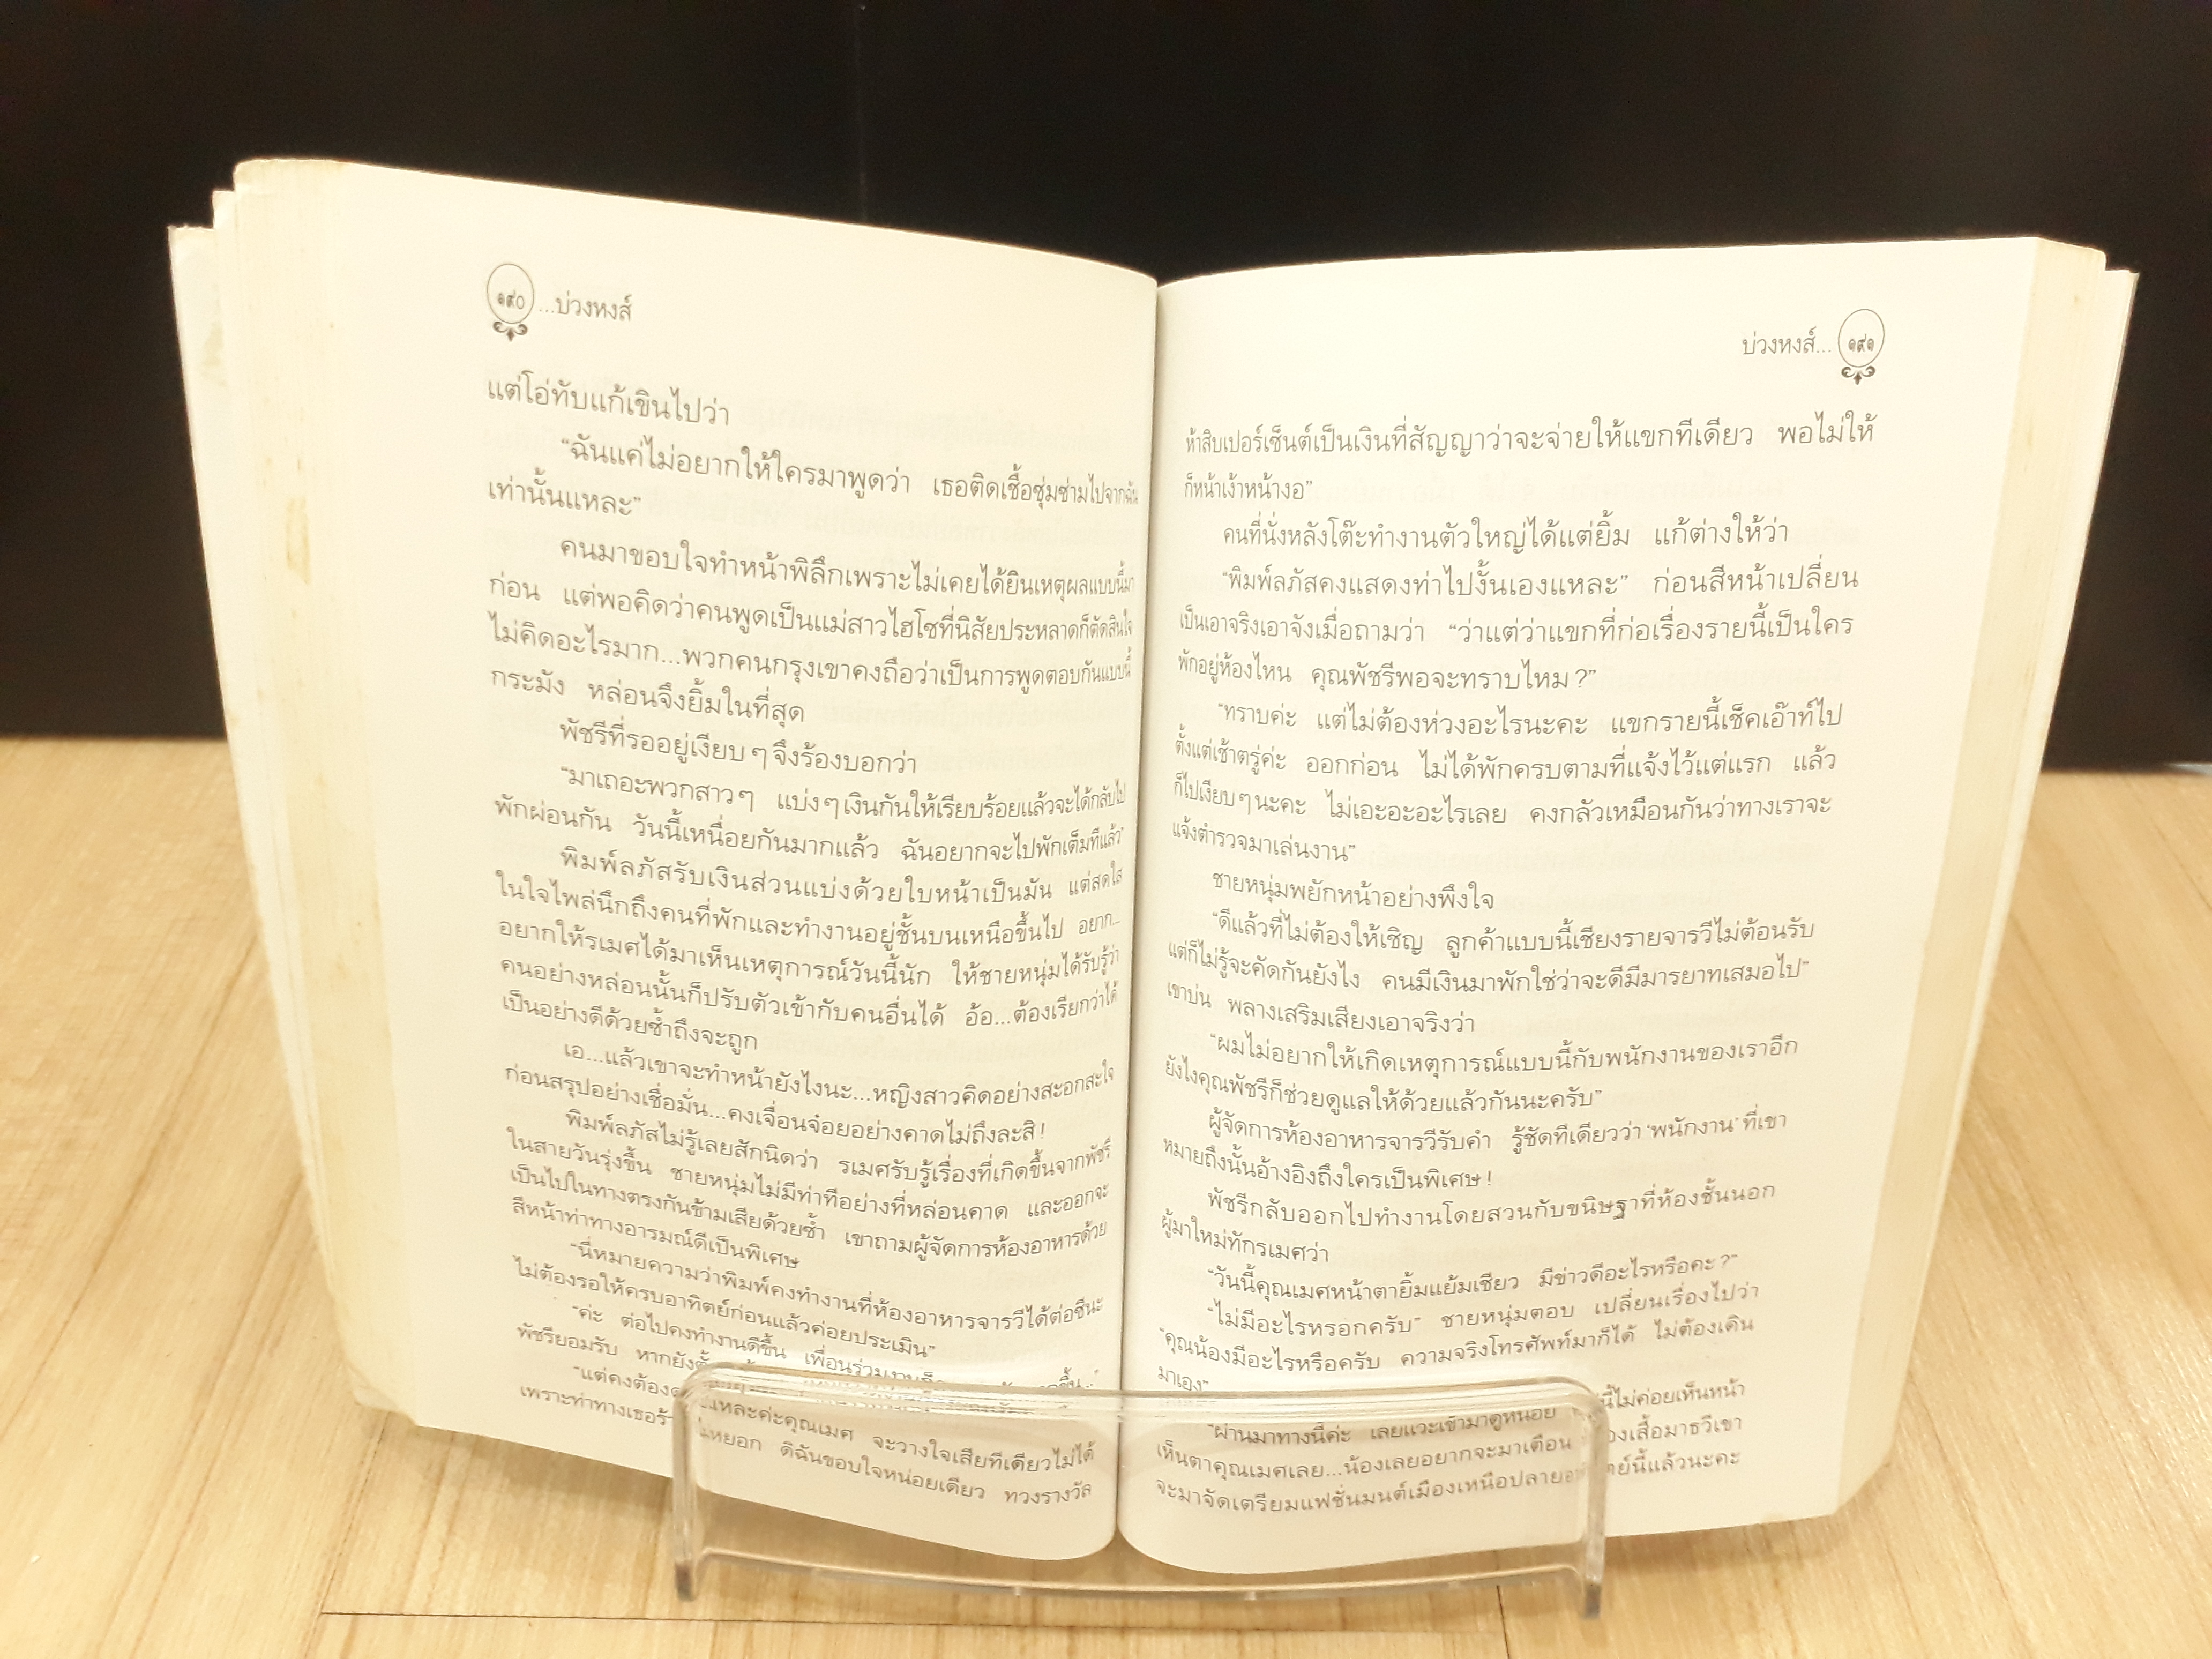 ๑๙๐ ...บ่วงหงส์
แต่โอ่ทับแก้เขินไปว่า
“ฉันแค่ไม่อยากให้ใครมาพูดว่า เธอติดเชื้อซุ่มซ่ามไปจากฉัน
เท่านั้นแหละ”
คนมาขอบใจทำหน้าพิลึกเพราะไม่เคยได้ยินเหตุผลแบบนี้มา
ก่อน แต่พอคิดว่าคนพูดเป็นแม่สาวไฮโซที่นิสัยประหลาดก็ตัดสินใจ
ไม่คิดอะไรมาก...พวกคนกรุงเขาคงถือว่าเป็นการพูดตอบกันแบบนี้
กระมัง หล่อนจึงยิ้มในที่สุด
พัชรีที่รออยู่เงียบ ๆ จึงร้องบอกว่า
“มาเถอะพวกสาว ๆ แบ่ง ๆ เงินกันให้เรียบร้อยแล้วจะได้กลับไป
พักผ่อนกัน วันนี้เหนื่อยกันมากแล้ว ฉันอยากจะไปพักเต็มทีแล้ว”
พิมพ์ลภัสรับเงินส่วนแบ่งด้วยใบหน้าเป็นมัน แต่สดใส
ในใจไพล่นึกถึงคนที่พักและทำงานอยู่ชั้นบนเหนือขึ้นไป อยาก...
อยากให้รเมศได้มาเห็นเหตุการณ์วันนี้นัก ให้ชายหนุ่มได้รับรู้ว่า
คนอย่างหล่อนนั้นก็ปรับตัวเข้ากับคนอื่นได้ อ้อ...ต้องเรียกว่าได้
เป็นอย่างดีด้วยซ้ำถึงจะถูก
เอ...แล้วเขาจะทำหน้ายังไงนะ...หญิงสาวคิดอย่างสะอกสะใจ
ก่อนสรุปอย่างเชื่อมั่น...คงเจื่อนจ๋อยอย่างคาดไม่ถึงละสิ !
พิมพ์ลภัสไม่รู้เลยสักนิดว่า รเมศรับรู้เรื่องที่เกิดขึ้นจากพัชรี
ในสายวันรุ่งขึ้น ชายหนุ่มไม่มีท่าทีอย่างที่หล่อนคาด และออกจะ
เป็นไปในทางตรงกันข้ามเสียด้วยซ้ำ เขาถามผู้จัดการห้องอาหารด้วย
สีหน้าท่าทางอารมณ์ดีเป็นพิเศษ
“นี่หมายความว่าพิมพ์คงทำงานที่ห้องอาหารจารวีได้ต่อซีนะ
ไม่ต้องรอให้ครบอาทิตย์ก่อนแล้วค่อยประเมิน”
“ค่ะ ต่อไปคงทำงานดีขึ้น เพื่อนร่วมงาน ขึ้น...”
พัชรียอมรับ หากยัง
“แต่คงต้อง แหละค่ะคุณเมศ จะวางใจเสียทีเดียวไม่ได้
เพราะท่าทางเธอร้า หยอก ดิฉันขอบใจหน่อยเดียว ทวงรางวัล
บ่วงหงส์... ๑๙๑
ห้าสิบเปอร์เซ็นต์เป็นเงินที่สัญญาว่าจะจ่ายให้แขกทีเดียว พอไม่ให้
ก็หน้าเง้าหน้างอ”
คนที่นั่งหลังโต๊ะทำงานตัวใหญ่ได้แต่ยิ้ม แก้ต่างให้ว่า
“พิมพ์ลภัสคงแสดงท่าไปงั้นเองแหละ” ก่อนสีหน้าเปลี่ยน
เป็นเอาจริงเอาจังเมื่อถามว่า “ว่าแต่ว่าแขกที่ก่อเรื่องรายนี้เป็นใคร
พักอยู่ห้องไหน คุณพัชรีพอจะทราบไหม ?”
“ทราบค่ะ แต่ไม่ต้องห่วงอะไรนะคะ แขกรายนี้เช็คเอ๊าท์ไป
ตั้งแต่เช้าตรู่ค่ะ ออกก่อน ไม่ได้พักครบตามที่แจ้งไว้แต่แรก แล้ว
ก็ไปเงียบ ๆ นะคะ ไม่เอะอะอะไรเลย คงกลัวเหมือนกันว่าทางเราจะ
แจ้งตำรวจมาเล่นงาน”
ชายหนุ่มพยักหน้าอย่างพึงใจ
“ดีแล้วที่ไม่ต้องให้เชิญ ลูกค้าแบบนี้เชียงรายจารวีไม่ต้อนรับ
แต่ก็ไม่รู้จะคัดกันยังไง คนมีเงินมาพักใช่ว่าจะดีมีมารยาทเสมอไป”
เขาบ่น พลางเสริมเสียงเอาจริงว่า
“ผมไม่อยากให้เกิดเหตุการณ์แบบนี้กับพนักงานของเราอีก
ยังไงคุณพัชรีก็ช่วยดูแลให้ด้วยแล้วกันนะครับ”
ผู้จัดการห้องอาหารจารวีรับคำ รู้ชัดทีเดียวว่า ‘พนักงาน’ ที่เขา
หมายถึงนั้นอ้างอิงถึงใครเป็นพิเศษ !
พัชรีกลับออกไปทำงานโดยสวนกับขนิษฐาที่ห้องชั้นนอก
ผู้มาใหม่ทักรเมศว่า
“วันนี้คุณเมศหน้าตายิ้มแย้มเชียว มีข่าวดีอะไรหรือคะ ?”
“ไม่มีอะไรหรอกครับ” ชายหนุ่มตอบ เปลี่ยนเรื่องไปว่า
“คุณน้องมีอะไรหรือครับ ความจริงโทรศัพท์มาก็ได้ ไม่ต้องเดิน
มาเอง”
“ผ่านมาทางนี้ค่ะ เลยแวะเข้ามาดูหน่อย นี้ไม่ค่อยเห็นหน้า
เห็นตาคุณเมศเลย...น้องเลยอยากจะมาเตือน องเสื้อมาธวีเขา
จะมาจัดเตรียมแฟชั่นมนต์เมืองเหนือปลายอาทิตย์นี้แล้วนะคะ